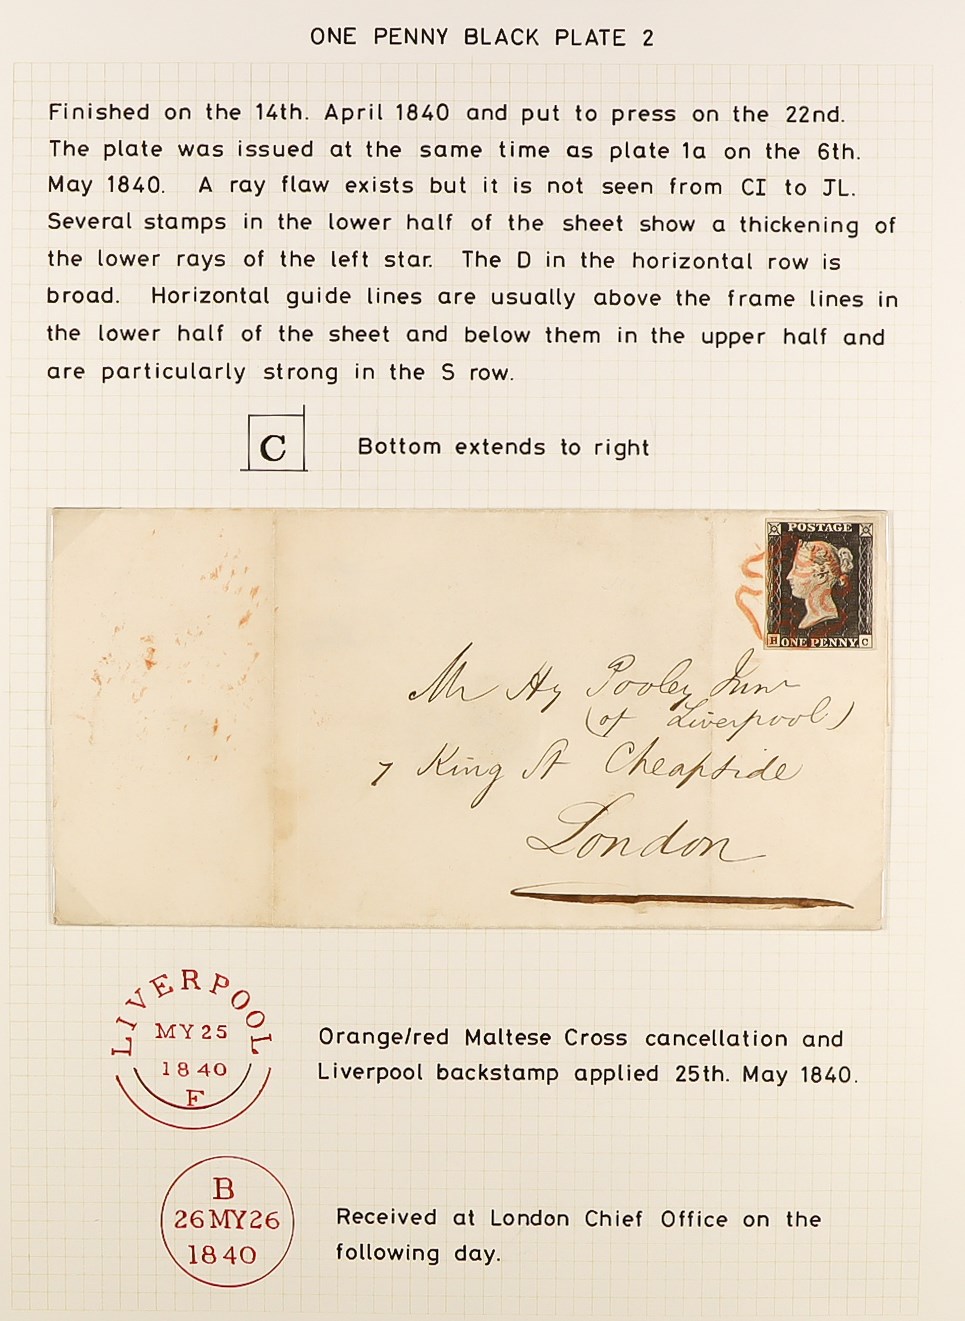 ONE PENNY BLACK PLATE 2
Finished on the 14th. April 1840 and put to press on the 22nd.
The plate was issued at the same time as plate 1a on the 6th.
May 1840. A ray flaw exists but it is not seen from CI to JL.
Several stamps in the lower half of the sheet show a thickening of
the lower rays of the left star. The D in the horizontal row is
broad. Horizontal guide lines are usually above the frame lines in
the lower half of the sheet and below them in the upper half and
are particularly strong in the S row.
C Bottom extends to right
POSTAGE
H ONE PENNY C
Mr Hy Pooley Junr
(of Liverpool)
7 King St Cheapside
London
LIVERPOOL
MY 25
1840
F
Orange/red Maltese Cross cancellation and
Liverpool backstamp applied 25th. May 1840.
B
26MY26
1840
Received at London Chief Office on the
following day.